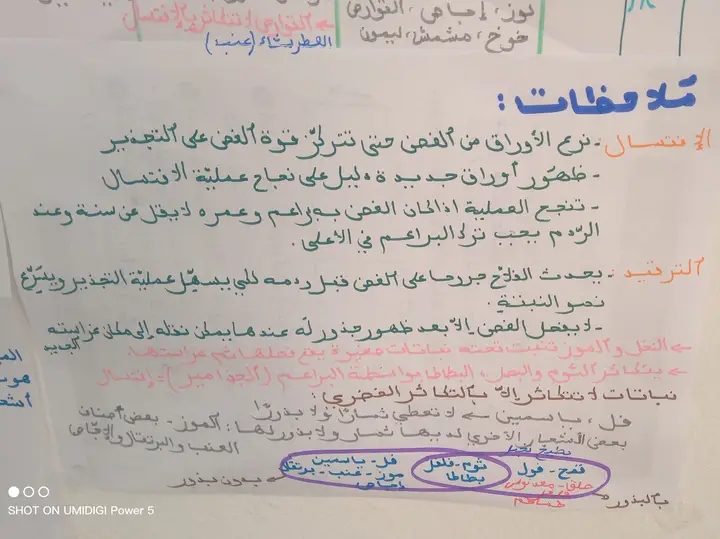 لوز، إجاص، الخوارج
خوخ، مشمش، ليمون
بالافتسال
(عنب)
ملاحظات :
الافتسال - نزع الأوراق من الغصن حتى تتركز قوة الغصن على التجذير
- ظهور أوراق جديدة دليل على نجاح عملية الافتسال
- تنجح العملية اذا كان الغصن به براعم وعمره لا يقل عن سنة وعند
الردم يجب ترك البراعم في الأعلى .
الترقيد - يحدث الفلاح جروحا على الغصن قبل ردمه لكي يسهّل عملية التجذير ويسرّع
نمو النبتة .
- لا يفصل الغصن إلا بعد ظهور جذور له عندها يمكن نقله إلى مكان غراسته
الجديد
← النخل والموز تنبت تحته نباتات صغيرة يقع فصلها ثم غراستها .
← يتكاثر الثوم والبصل، البطاطا بواسطة البراعم = افتسال
نباتات لا تتكاثر إلا بالتكاثر الخضري :
فل ، ياسمين ← لا تعطي ثمارًا ولا بذورًا
بعض الأشجار الأخرى لديها ثمار ولا بذور لها : الموز - بعض أصناف
العنب والبرتقال والإجاص
قمح - فول
ثوم - فلفل
بطاطا
فل - ياسمين
موز - عنب - برتقال
إجاص
طماطم
بالبذور
بدون بذور
SHOT ON UMIDIGI Power 5